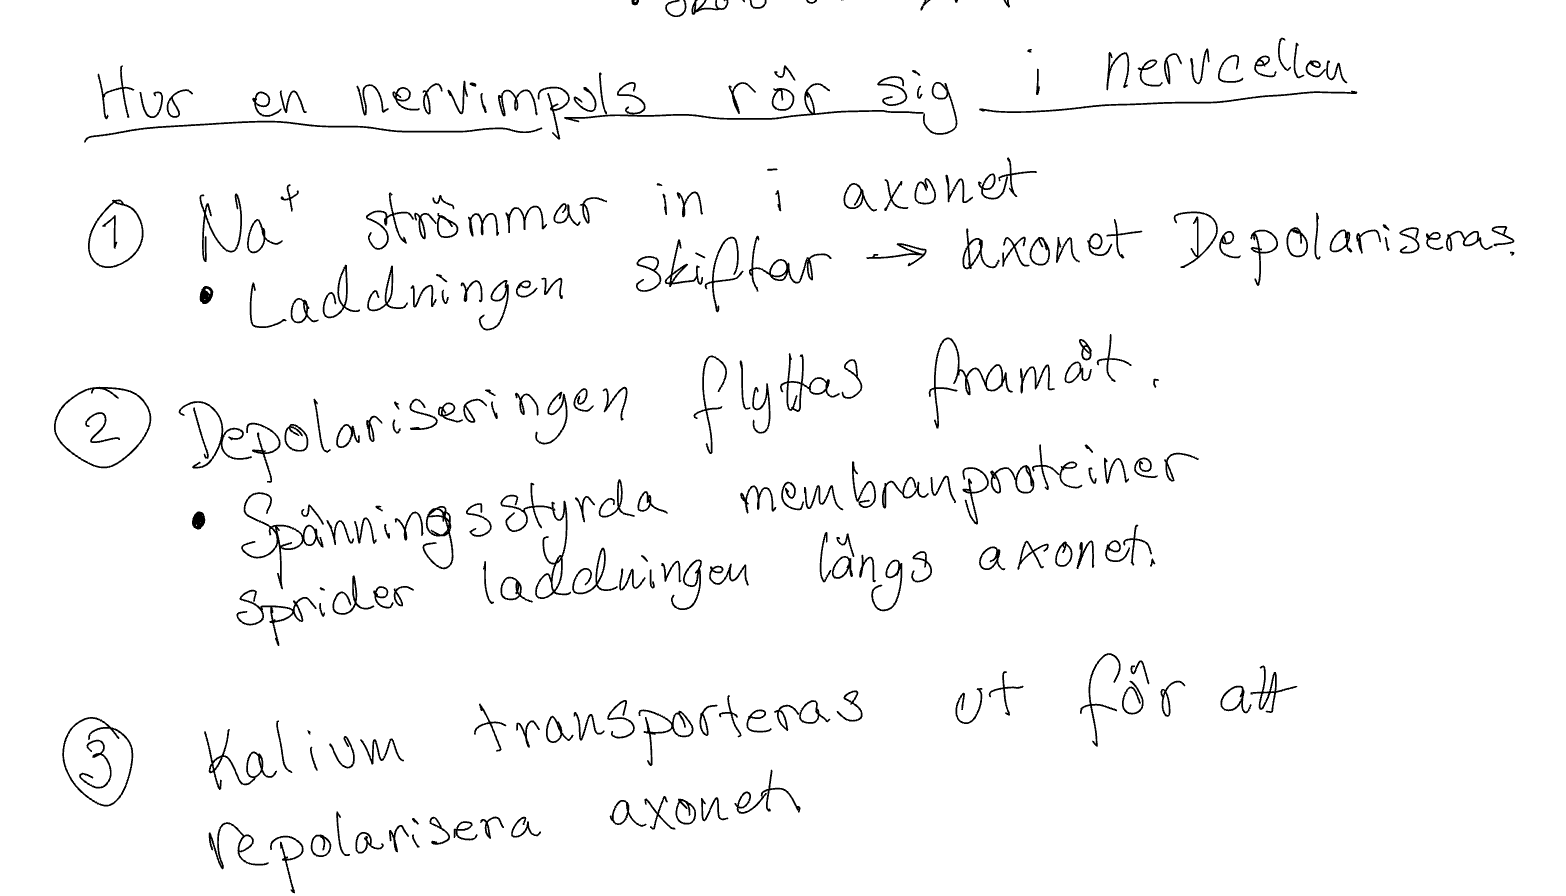 Hur en nervimpuls rör sig i nervcellen
① Na⁺ strömmar in i axonet
• Laddningen skiftar → axonet Depolariseras.
② Depolariseringen flyttas framåt.
• Spänningsstyrda membranproteiner
sprider laddningen längs axonet.
③ Kalium transporteras ut för att
repolarisera axonet